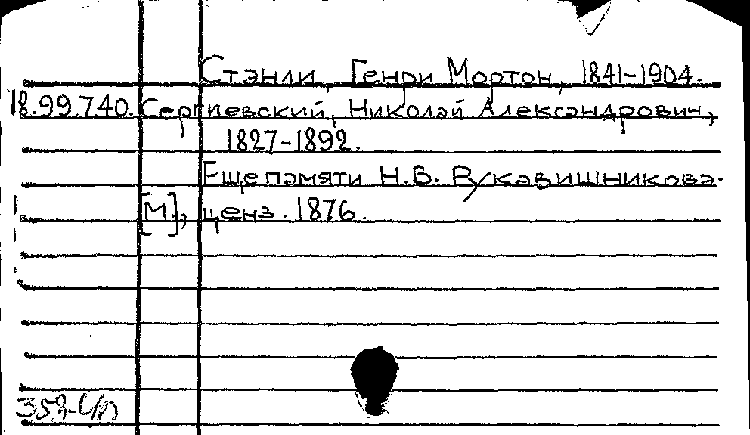 Стэнли, Генри Мортон, 1841-1904.
18.99.740. Сергиевский, Николай Александрович,
1827-1892.
Еще памяти Н.В. Рукавишникова.
[М], ценз. 1876.